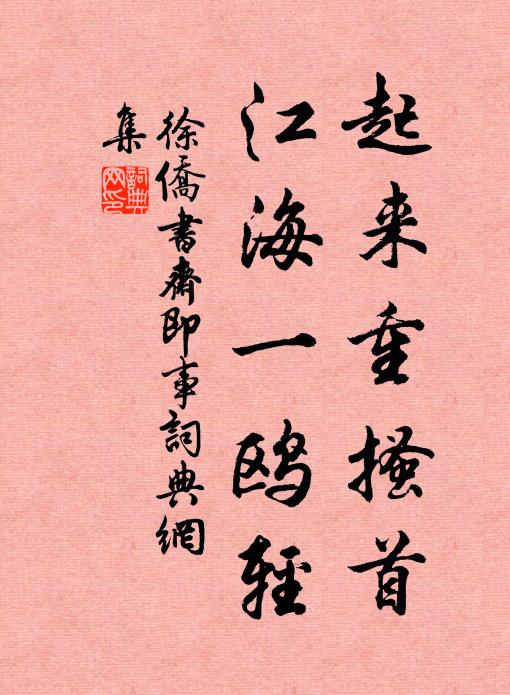 起来重搔首
江海一鸥轻
徐僑書齋即事詞典網
集
詞典
网印